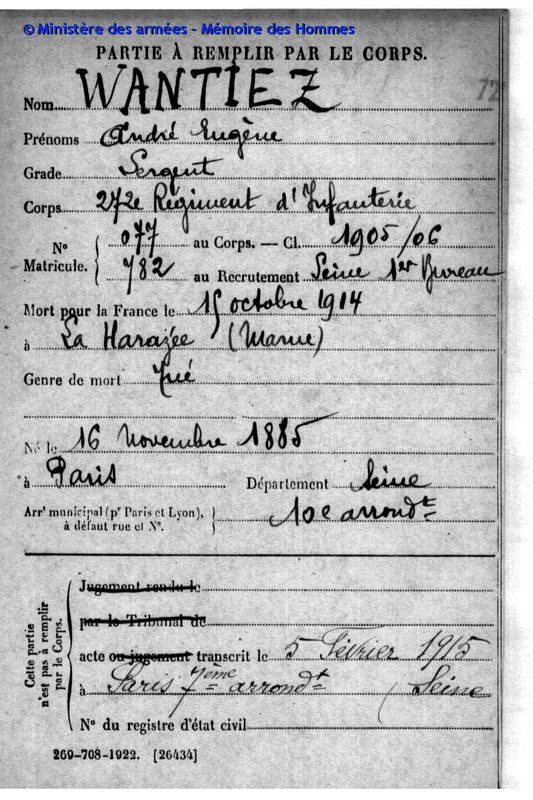 © Ministère des armées - Mémoire des Hommes
PARTIE À REMPLIR PAR LE CORPS.
Nom WANTIEZ
Prénoms André Eugène
Grade Sergent
Corps 272e Régiment d'Infanterie
N° Matricule. { 077 au Corps. — Cl. 1905/06
782 au Recrutement Seine 1er Bureau
Mort pour la France le 15 octobre 1914
à La Harazée (Marne)
Genre de mort Tué
Né le 16 novembre 1885
à Paris Département Seine
Arrt municipal (pr Paris et Lyon), à défaut rue et N°. } 10e arrondt
Cette partie n'est pas à remplir par le Corps.
Jugement rendu le
par le Tribunal de
acte ou jugement transcrit le 5 Février 1915
à Paris 7ème arrondt (Seine
N° du registre d'état civil
269-708-1922. [26434]